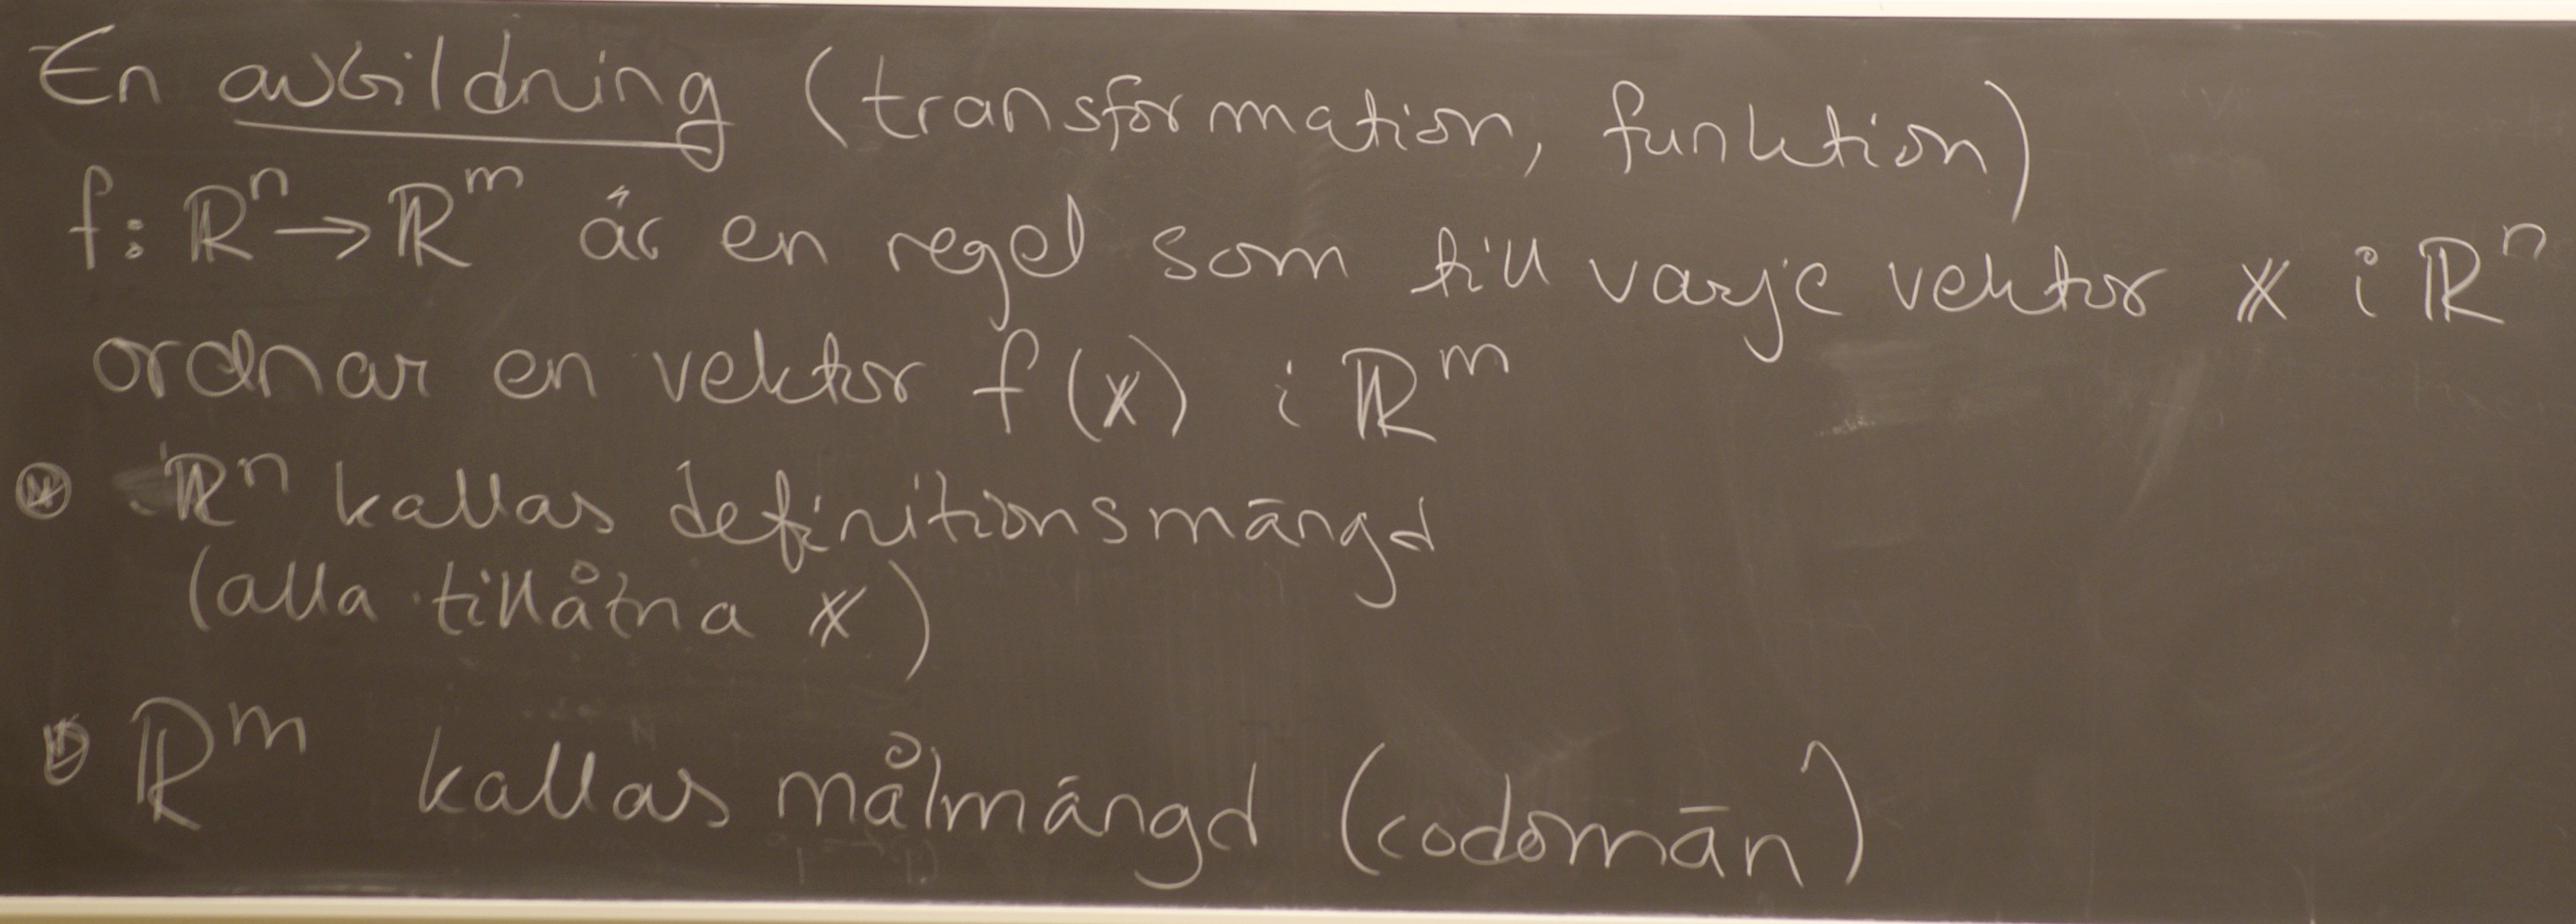 En avbildning (transformation, funktion)
f: ℝⁿ → ℝᵐ är en regel som till varje vektor 𝕩 i ℝⁿ
ordnar en vektor f(𝕩) i ℝᵐ
• ℝⁿ kallas definitionsmängd
(alla tillåtna 𝕩)
• ℝᵐ kallas målmängd (codomän)